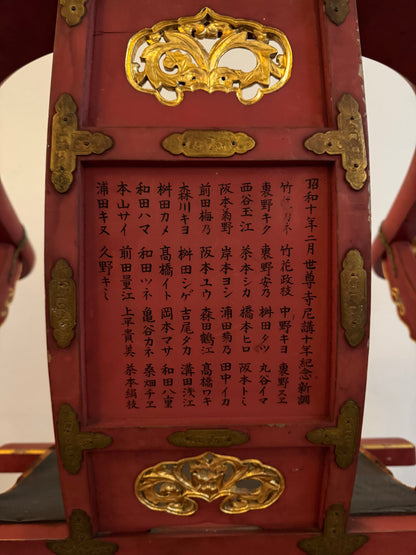 昭和十年二月世尊寺尼講十年紀念新調
竹 カネ 竹花政枝 中野キヨ 裏野スヱ
裏野キク 裏野安乃 桝田タツ 丸谷イマ
西谷玉江 茶本シカ 橋本ヒロ 阪本トミ
阪本菊野 岸本ヨシ 浦田菊乃 田中イカ
前田梅乃 阪本ユウ 森田鶴江 髙橋ワキ
森川キヨ 桝田シゲ 吉尾タカ 溝田浅江
桝田カメ 髙橋イト 岡本マサ 和田八重
和田ハマ 和田ツネ 亀谷カネ 桑畑チヱ
本山サイ 前田量江 上平貴美 茶本絹枝
浦田キヌ 久野キミ